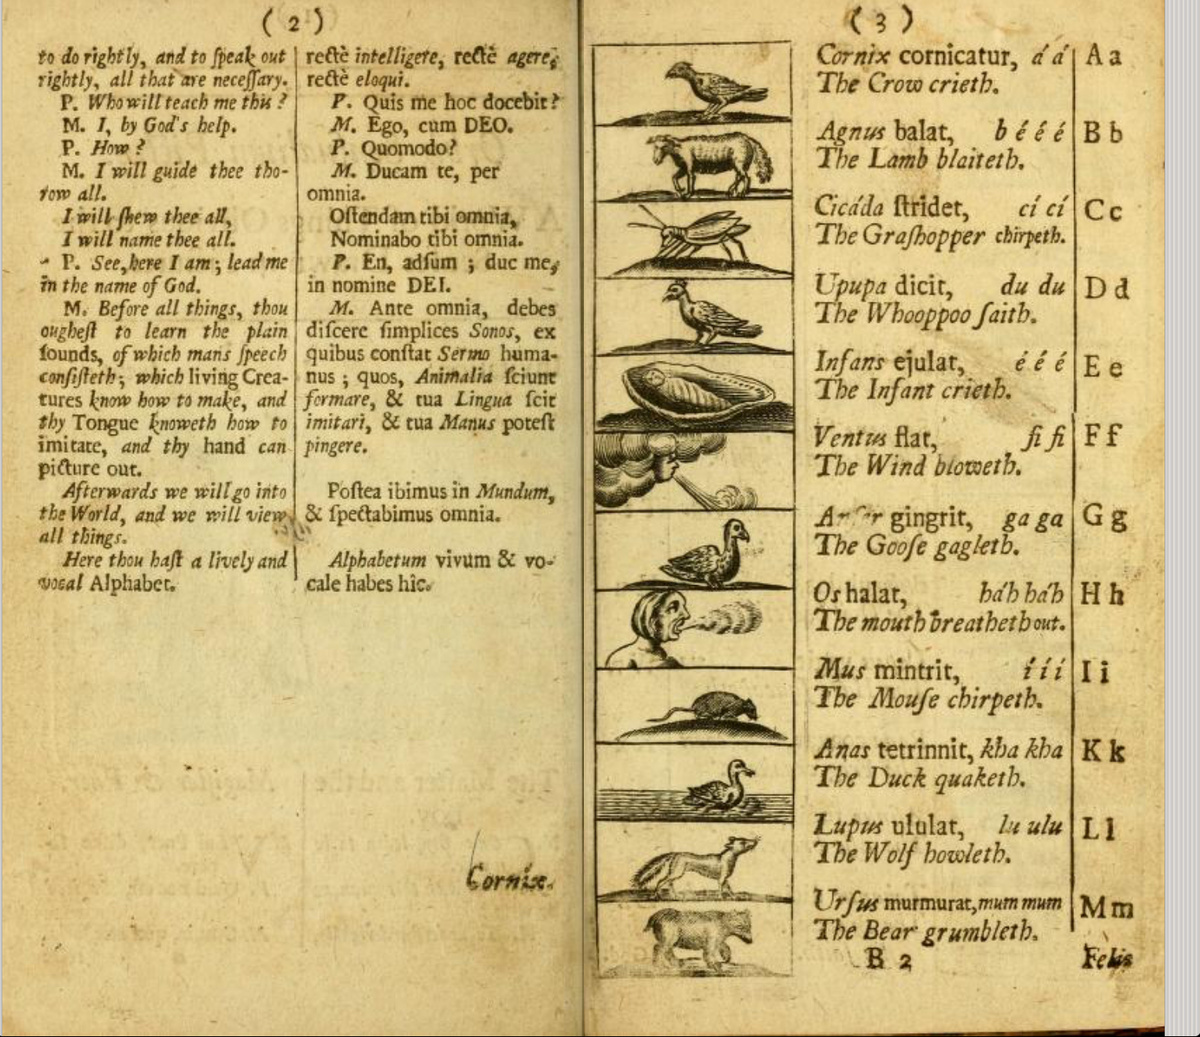 ( 2 )
to do rightly, and to ſpeak out
rightly, all that are neceſſary.
P. Who will teach me this ?
M. I, by God's help.
P. How ?
M. I will guide thee tho-
row all.
I will ſhew thee all,
I will name thee all.
P. See, here I am ; lead me
in the name of God.
M. Before all things, thou
ougheſt to learn the plain
ſounds, of which mans ſpeech
conſiſteth ; which living Crea-
tures know how to make, and
thy Tongue knoweth how to
imitate, and thy hand can
picture out.
Afterwards we will go into
the World, and we will view
all things.
Here thou haſt a lively and
vocal Alphabet.
rectè intelligere, rectè agere,
rectè eloqui.
P. Quis me hoc docebit ?
M. Ego, cum DEO.
P. Quomodo?
M. Ducam te, per
omnia.
Oſtendam tibi omnia,
Nominabo tibi omnia.
P. En, adſum ; duc me,
in nomine DEI.
M. Ante omnia, debes
diſcere ſimplices Sonos, ex
quibus conſtat Sermo huma-
nus ; quos, Animalia ſciunt
formare, & tua Lingua ſcit
imitari, & tua Manus poteſt
pingere.
Poſtea ibimus in Mundum,
& ſpectabimus omnia.
Alphabetum vivum & vo-
cale habes hic.
Cornix.
( 3 )
Cornix cornicatur, á á A a
The Crow crieth.
Agnus balat, b é é é B b
The Lamb blaiteth.
Cicáda ſtridet, cí cí C c
The Graſhopper chirpeth.
Upupa dicit, du du D d
The Whooppoo ſaith.
Infans ejulat, é é é E e
The Infant crieth.
Ventus flat, fi fi F f
The Wind bloweth.
gingrit, ga ga G g
The Gooſe gagleth.
Os halat, há'h há'h H h
The mouth breatheth out.
Mus mintrit, í í í I i
The Mouſe chirpeth.
Anas tetrinnit, kha kha K k
The Duck quaketh.
Lupus ululat, lu ulu L l
The Wolf howleth.
Urſus murmurat, mum mum M m
The Bear grumbleth.
B 2 Felis